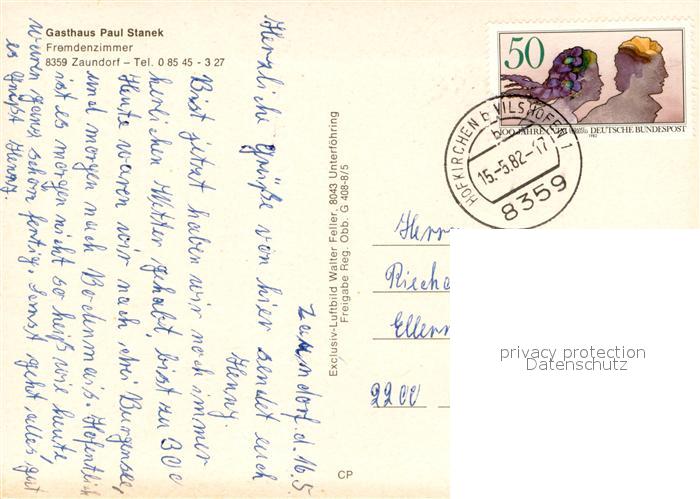 Gasthaus Paul Stanek
Fremdenzimmer
8359 Zaundorf – Tel. 0 85 45 - 3 27
Zaundorf. d. 16.5
Herzliche Grüße von hier sendet euch
Henny.
Bist jetzt haben wir noch immer
herlichen Wetter gehabt, bist zu 30C
Heute waren wir nach drei
und morgen nach Bodenmais. Hofentlich
ist es morgen nicht so heiß wie heute,
waren ganz schön fertig. Sonst geht alles gut
es grüßt Henny.
Exclusiv-Luftbild Walter Feller, 8043 Unterföhring
Freigabe Reg. Obb. G 408-8/5
CP
50
DEUTSCHE BUNDESPOST
1982
HOFKIRCHEN b VILSHOFEN 1
15.-5.82-17
8359
Herrn
2200
privacy protection
Datenschutz